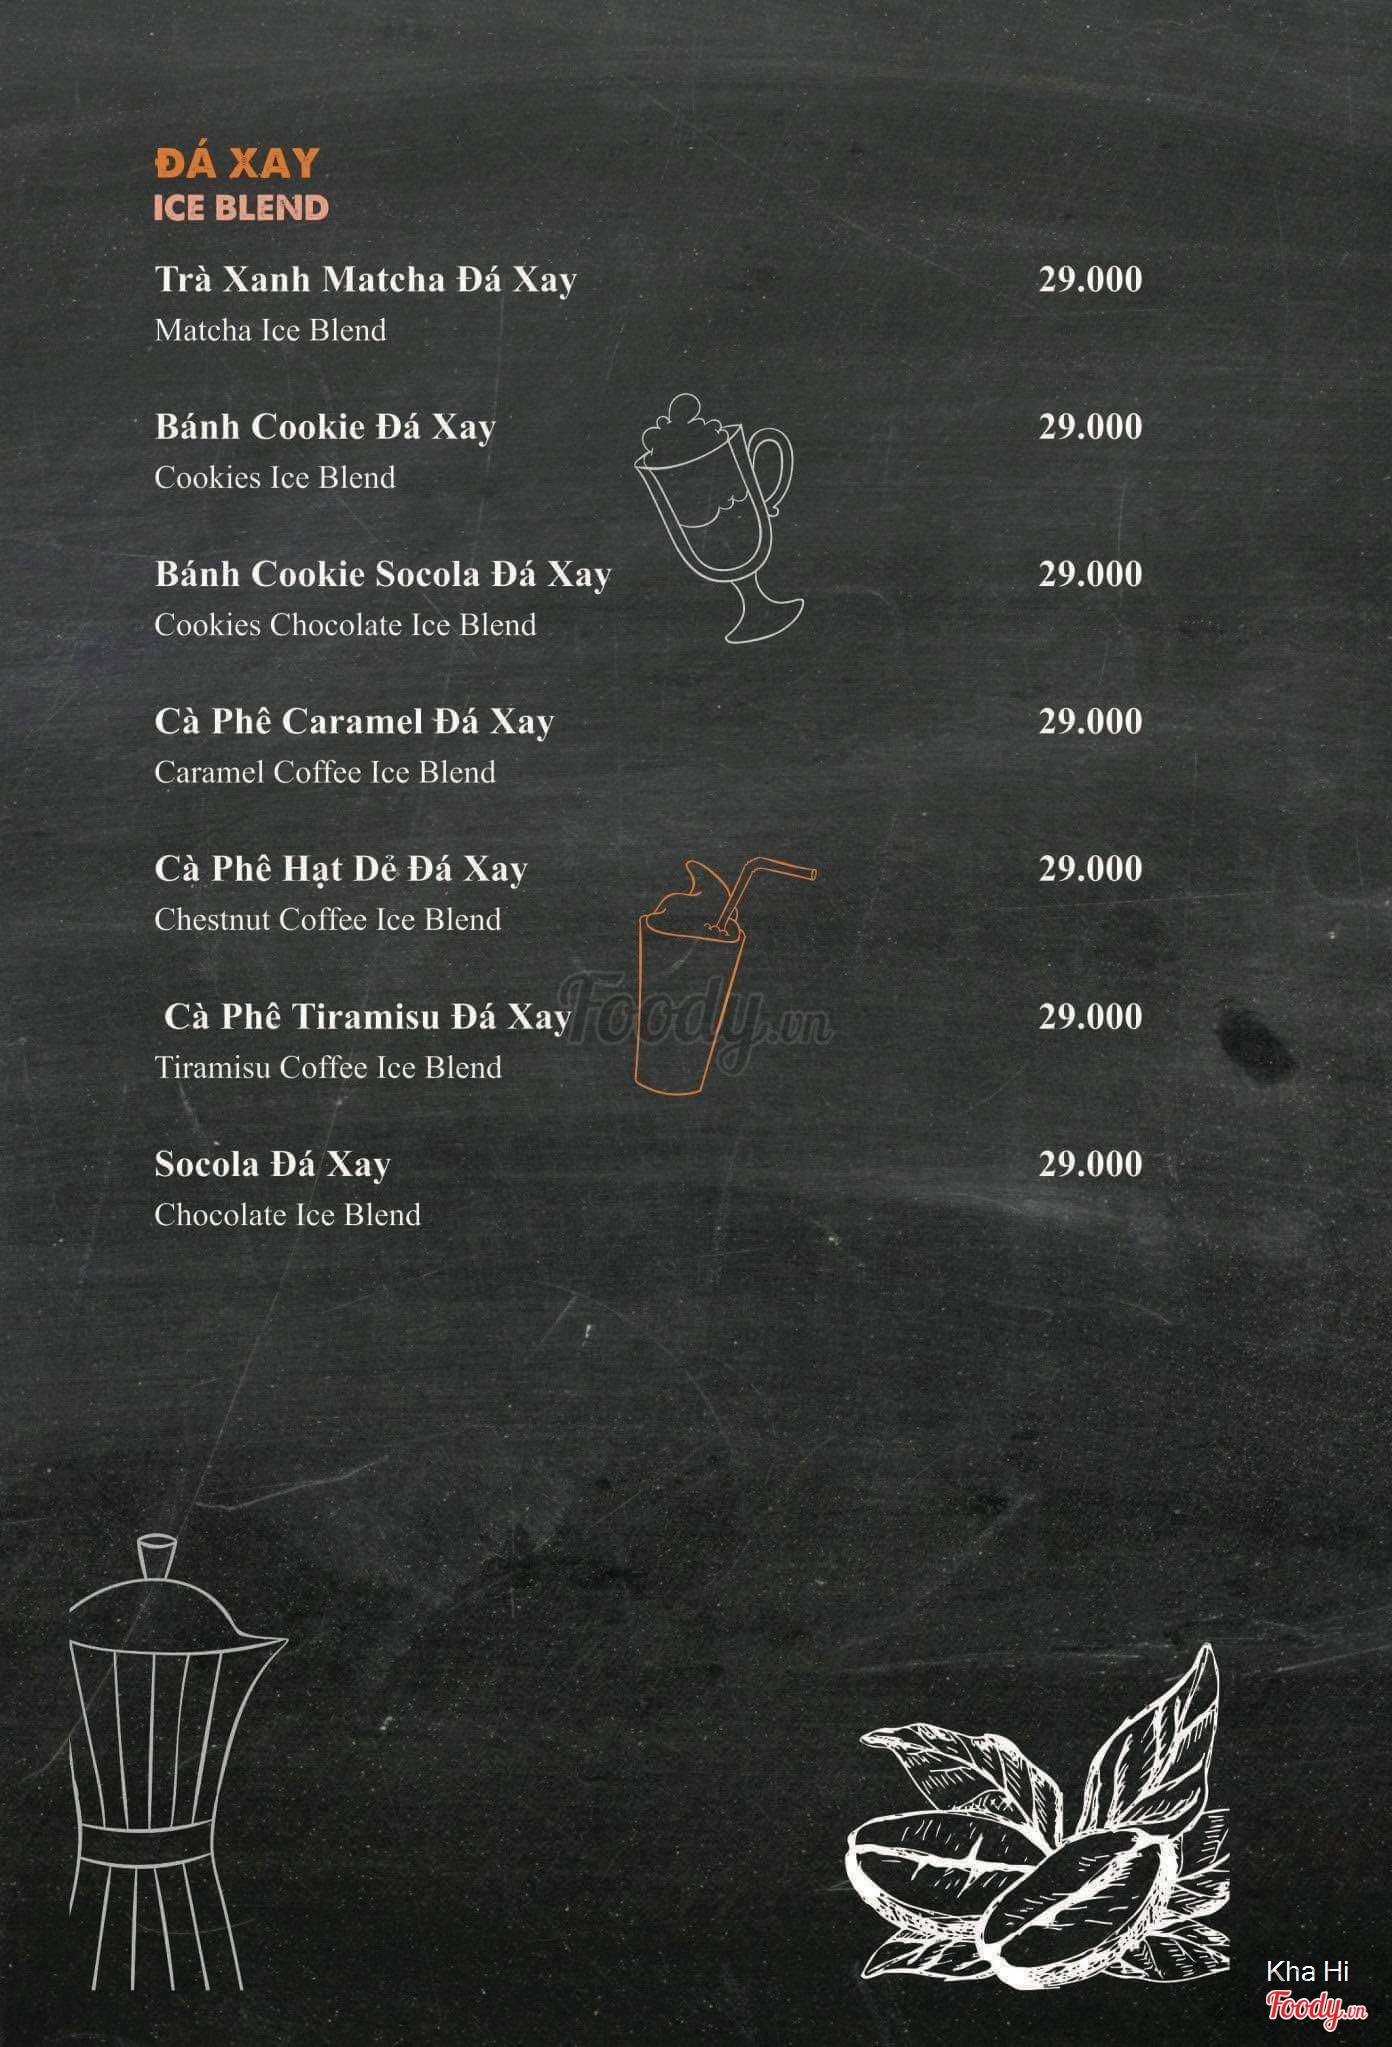 ĐÁ XAY
ICE BLEND
Trà Xanh Matcha Đá Xay 29.000
Matcha Ice Blend
Bánh Cookie Đá Xay 29.000
Cookies Ice Blend
Bánh Cookie Socola Đá Xay 29.000
Cookies Chocolate Ice Blend
Cà Phê Caramel Đá Xay 29.000
Caramel Coffee Ice Blend
Cà Phê Hạt Dẻ Đá Xay 29.000
Chestnut Coffee Ice Blend
Cà Phê Tiramisu Đá Xay 29.000
Foody.vn
Tiramisu Coffee Ice Blend
Socola Đá Xay 29.000
Chocolate Ice Blend
Kha Hi
Foody.vn